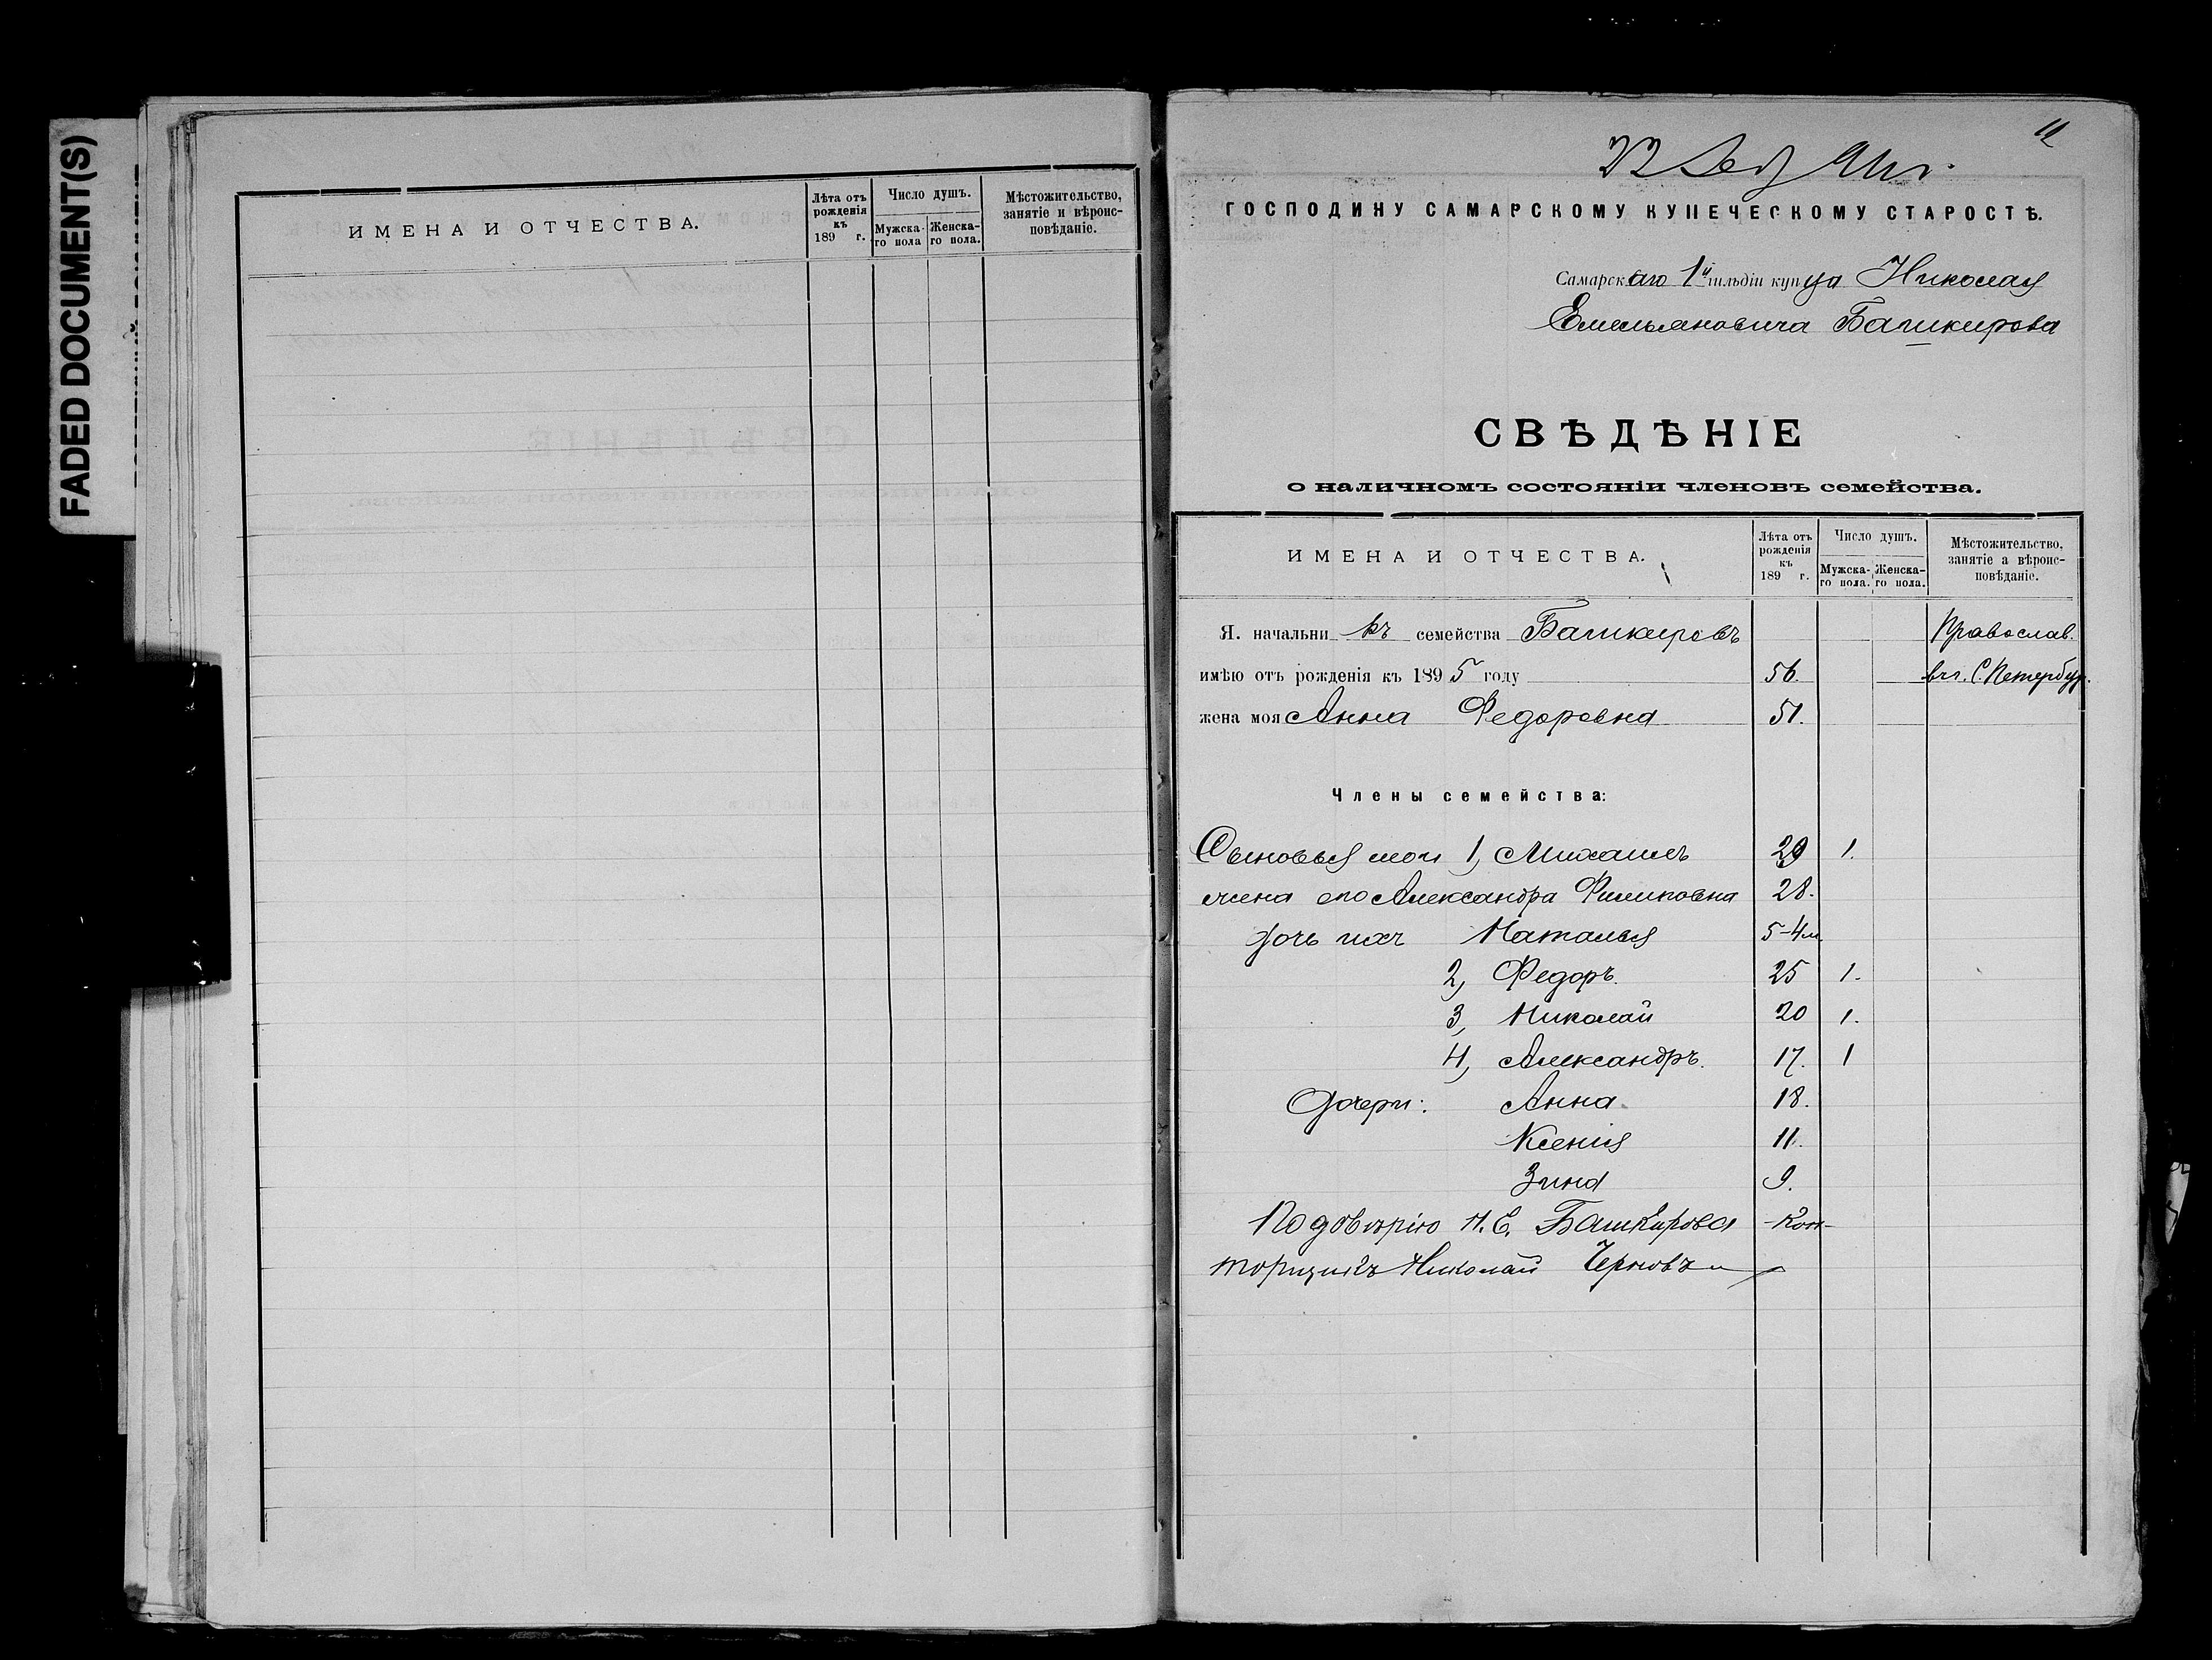 FADED DOCUMENT(S)
ИМЕНА И ОТЧЕСТВА.
Лѣта отъ рожденія къ 189 г.
Число душъ.
Мужска-го пола
Женска-го пола.
Мѣстожительство, занятіе и вѣроис-повѣданіе.
11
22
ГОСПОДИНУ САМАРСКОМУ КУПЕЧЕСКОМУ СТАРОСТѢ.
Самарскаго 1й гильдіи купца Николая
Емельяновича Башкирова
СВѢДѢНІЕ
о наличномъ состояніи членовъ семейства.
ИМЕНА И ОТЧЕСТВА.
Лѣта отъ рожденія къ 189 г.
Число душъ.
Мужска-го пола.
Женска-го пола.
Мѣстожительство, занятіе а вѣроис-повѣданіе.
Я. начальникъ семейства Башкировъ Православ.
имѣю отъ рожденія къ 1895 году 56. въ г. С. Петербур.
жена моя Анна Федоровна 51.
Члены семейства:
Сыновья мои 1, Михаилъ 29 1.
жена его Александра Филиповна 28.
дочь ихъ Наталья 5-4м
2, Федоръ. 25 1.
3, Николай 20 1.
4, Александръ. 17. 1
Дочери: Анна 18.
Ксенія 11.
Зина 9.
По довѣрію Н. Е. Башкирова Кон-
торщикъ Николай Черновъ